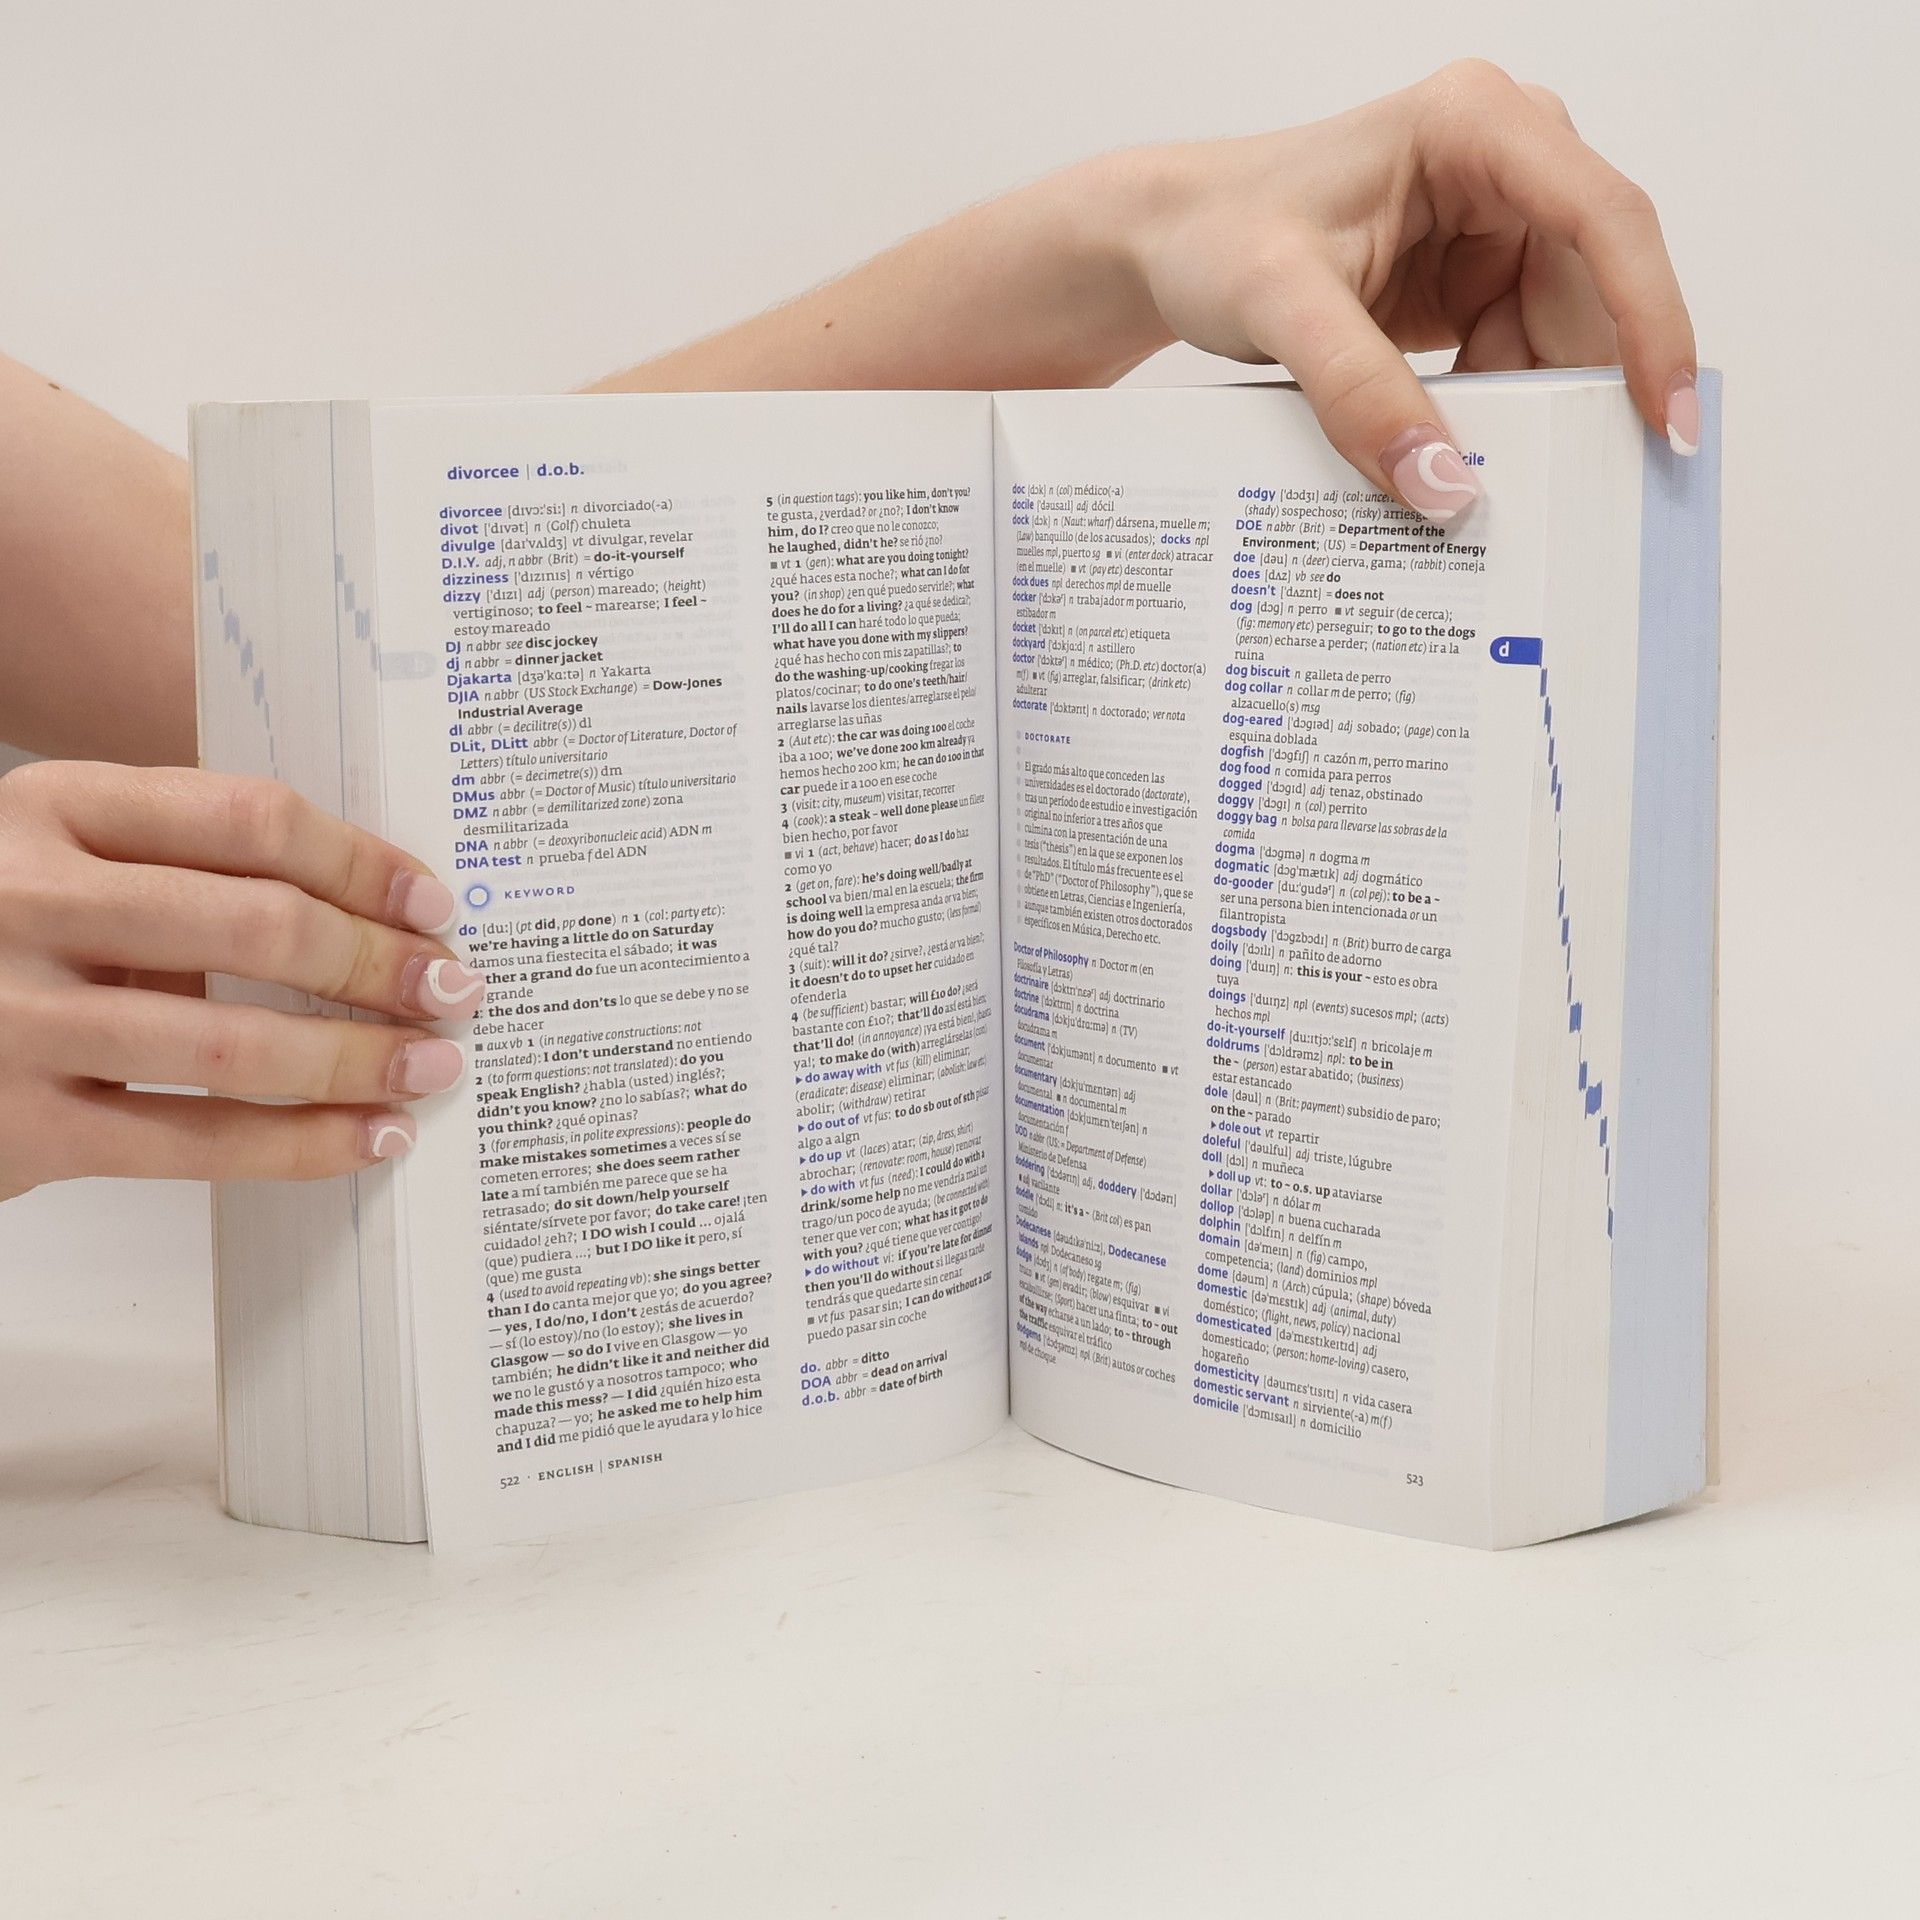 divorcee | d.o.b.
divorcee [dɪvɔːˈsiː] n divorciado(-a)
divot [ˈdɪvət] n (Golf) chuleta
divulge [daɪˈvʌldʒ] vt divulgar, revelar
D.I.Y. adj, n abbr (Brit) = do-it-yourself
dizziness [ˈdɪzɪnɪs] n vértigo
dizzy [ˈdɪzɪ] adj (person) mareado; (height)
vertiginoso; to feel ~ marearse; I feel ~
estoy mareado
DJ n abbr see disc jockey
dj n abbr = dinner jacket
Djakarta [dʒəˈkɑːtə] n Yakarta
DJIA n abbr (US Stock Exchange) = Dow-Jones
Industrial Average
dl abbr (= decilitre(s)) dl
DLit, DLitt abbr (= Doctor of Literature, Doctor of
Letters) título universitario
dm abbr (= decimetre(s)) dm
DMus abbr (= Doctor of Music) título universitario
DMZ n abbr (= demilitarized zone) zona
desmilitarizada
DNA n abbr (= deoxyribonucleic acid) ADN m
DNA test n prueba f del ADN
KEYWORD
do [duː] (pt did, pp done) n 1 (col: party etc):
we're having a little do on Saturday
damos una fiestecita el sábado; it was
ther a grand do fue un acontecimiento a
grande
2: the dos and don'ts lo que se debe y no se
debe hacer
■ aux vb 1 (in negative constructions: not
translated): I don't understand no entiendo
2 (to form questions: not translated): do you
speak English? ¿habla (usted) inglés?; what do
didn't you know? ¿no lo sabías?; what do
you think? ¿qué opinas?
3 (for emphasis, in polite expressions): people do
make mistakes sometimes a veces sí se
cometen errores; she does seem rather
late a mí también me parece que se ha
retrasado; do sit down/help yourself
siéntate/sírvete por favor; do take care! ¡ten
cuidado! ¿eh?; I DO wish I could ... ojalá
(que) pudiera ...; but I DO like it pero, sí
(que) me gusta
4 (used to avoid repeating vb): she sings better
than I do canta mejor que yo; do you agree?
— yes, I do/no, I don't ¿estás de acuerdo?
— sí (lo estoy)/no (lo estoy); she lives in
Glasgow — so do I vive en Glasgow — yo
también; he didn't like it and neither did
we no le gustó y a nosotros tampoco; who
made this mess? — I did ¿quién hizo esta
chapuza? — yo; he asked me to help him
and I did me pidió que le ayudara y lo hice
522 · ENGLISH | SPANISH
5 (in question tags): you like him, don't you?
te gusta, ¿verdad? or ¿no?; I don't know
him, do I? creo que no le conozco;
he laughed, didn't he? se rió ¿no?
■ vt 1 (gen): what are you doing tonight?
¿qué haces esta noche?; what can I do for
you? (in shop) ¿en qué puedo servirle?; what
does he do for a living? ¿a qué se dedica?;
I'll do all I can haré todo lo que pueda;
what have you done with my slippers?
¿qué has hecho con mis zapatillas?; to
do the washing-up/cooking fregar los
platos/cocinar; to do one's teeth/hair/
nails lavarse los dientes/arreglarse el pelo/
arreglarse las uñas
2 (Aut etc): the car was doing 100 el coche
iba a 100; we've done 200 km already ya
hemos hecho 200 km; he can do 100 in that
car puede ir a 100 en ese coche
3 (visit: city, museum) visitar, recorrer
4 (cook): a steak – well done please un filete
bien hecho, por favor
■ vi 1 (act, behave) hacer; do as I do haz
como yo
2 (get on, fare): he's doing well/badly at
school va bien/mal en la escuela; the firm
is doing well la empresa anda or va bien;
how do you do? mucho gusto; (less formal)
¿qué tal?
3 (suit): will it do? ¿sirve?, ¿está or va bien?;
it doesn't do to upset her cuidado en
ofenderla
4 (be sufficient) bastar; will £10 do? ¿será
bastante con £10?; that'll do así está bien;
that'll do! (in annoyance) ¡ya está bien!, ¡basta
ya!; to make do (with) arreglárselas (con)
▸ do away with vt fus (kill) eliminar;
(eradicate: disease) eliminar; (abolish: law etc)
abolir; (withdraw) retirar
▸ do out of vt fus: to do sb out of sth pisar
algo a algn
▸ do up vt (laces) atar; (zip, dress, shirt)
abrochar; (renovate: room, house) renovar
▸ do with vt fus (need): I could do with a
drink/some help no me vendría mal un
trago/un poco de ayuda; (be connected with)
tener que ver con; what has it got to do
with you? ¿qué tiene que ver contigo?
▸ do without vi: if you're late for dinner
then you'll do without si llegas tarde
tendrás que quedarte sin cenar
■ vt fus pasar sin; I can do without a car
puedo pasar sin coche
do. abbr = ditto
DOA abbr = dead on arrival
d.o.b. abbr = date of birth
cile
doc [dɔk] n (col) médico(-a)
docile [ˈdəusaɪl] adj dócil
dock [dɔk] n (Naut: wharf) dársena, muelle m;
(Law) banquillo (de los acusados); docks npl
muelles mpl, puerto sg ■ vi (enter dock) atracar
(en el muelle) ■ vt (pay etc) descontar
dock dues npl derechos mpl de muelle
docker [ˈdɔkəʳ] n trabajador m portuario,
estibador m
docket [ˈdɔkɪt] n (on parcel etc) etiqueta
dockyard [ˈdɔkjɑːd] n astillero
doctor [ˈdɔktəʳ] n médico; (Ph.D. etc) doctor(a)
m(f) ■ vt (fig) arreglar, falsificar; (drink etc)
adulterar
doctorate [ˈdɔktərɪt] n doctorado; ver nota
DOCTORATE
El grado más alto que conceden las
universidades es el doctorado (doctorate),
tras un período de estudio e investigación
original no inferior a tres años que
culmina con la presentación de una
tesis ("thesis") en la que se exponen los
resultados. El título más frecuente es el
de "PhD" ("Doctor of Philosophy"), que se
obtiene en Letras, Ciencias e Ingeniería,
aunque también existen otros doctorados
específicos en Música, Derecho etc.
Doctor of Philosophy n Doctor m (en
Filosofía y Letras)
doctrinaire [dɔktrɪˈnɛəʳ] adj doctrinario
doctrine [ˈdɔktrɪn] n doctrina
docudrama [dɔkjuˈdrɑːmə] n (TV)
docudrama m
document [ˈdɔkjumənt] n documento ■ vt
documentar
documentary [dɔkjuˈmɛntərɪ] adj
documental ■ n documental m
documentation [dɔkjumɛnˈteɪʃən] n
documentación f
DOD n abbr (US: = Department of Defense)
Ministerio de Defensa
doddering [ˈdɔdərɪŋ] adj, doddery [ˈdɔdərɪ]
■ adj vacilante
doddle [ˈdɔdl] n: it's a ~ (Brit col) es pan
comido
Dodecanese [dəudɪkəˈniːz], Dodecanese
Islands npl Dodecaneso sg
dodge [dɔdʒ] n (of body) regate m; (fig)
truco ■ vt (gen) evadir; (blow) esquivar ■ vi
escabullirse; (Sport) hacer una finta; to ~ out
of the way echarse a un lado; to ~ through
the traffic esquivar el tráfico
dodgems [ˈdɔdʒəmz] npl (Brit) autos or coches
mpl de choque
dodgy [ˈdɔdʒɪ] adj (col:
(shady) sospechoso; (risky)
DOE n abbr (Brit) = Department of the
Environment; (US) = Department of Energy
doe [dəu] n (deer) cierva, gama; (rabbit) coneja
does [dʌz] vb see do
doesn't [ˈdʌznt] = does not
dog [dɔg] n perro ■ vt seguir (de cerca);
(fig: memory etc) perseguir; to go to the dogs
(person) echarse a perder; (nation etc) ir a la
ruina
dog biscuit n galleta de perro
dog collar n collar m de perro; (fig)
alzacuello(s) msg
dog-eared [ˈdɔgɪəd] adj sobado; (page) con la
esquina doblada
dogfish [ˈdɔgfɪʃ] n cazón m, perro marino
dog food n comida para perros
dogged [ˈdɔgɪd] adj tenaz, obstinado
doggy [ˈdɔgɪ] n (col) perrito
doggy bag n bolsa para llevarse las sobras de la
comida
dogma [ˈdɔgmə] n dogma m
dogmatic [dɔgˈmætɪk] adj dogmático
do-gooder [duːˈgudəʳ] n (col pej): to be a ~
ser una persona bien intencionada or un
filantropista
dogsbody [ˈdɔgzbɔdɪ] n (Brit) burro de carga
doily [ˈdɔɪlɪ] n pañito de adorno
doing [ˈduɪŋ] n: this is your ~ esto es obra
tuya
doings [ˈduɪŋz] npl (events) sucesos mpl; (acts)
hechos mpl
do-it-yourself [duːɪtjɔːˈsɛlf] n bricolaje m
doldrums [ˈdɔldrəmz] npl: to be in
the ~ (person) estar abatido; (business)
estar estancado
dole [dəul] n (Brit: payment) subsidio de paro;
on the ~ parado
▸ dole out vt repartir
doleful [ˈdəulful] adj triste, lúgubre
doll [dɔl] n muñeca
▸ doll up vt: to ~ o.s. up ataviarse
dollar [ˈdɔləʳ] n dólar m
dollop [ˈdɔləp] n buena cucharada
dolphin [ˈdɔlfɪn] n delfín m
domain [dəˈmeɪn] n (fig) campo,
competencia; (land) dominios mpl
dome [dəum] n (Arch) cúpula; (shape) bóveda
domestic [dəˈmɛstɪk] adj (animal, duty)
doméstico; (flight, news, policy) nacional
domesticated [dəˈmɛstɪkeɪtɪd] adj
domesticado; (person: home-loving) casero,
hogareño
domesticity [dəumɛsˈtɪsɪtɪ] n vida casera
domestic servant n sirviente(-a) m(f)
domicile [ˈdɔmɪsaɪl] n domicilio
d
523